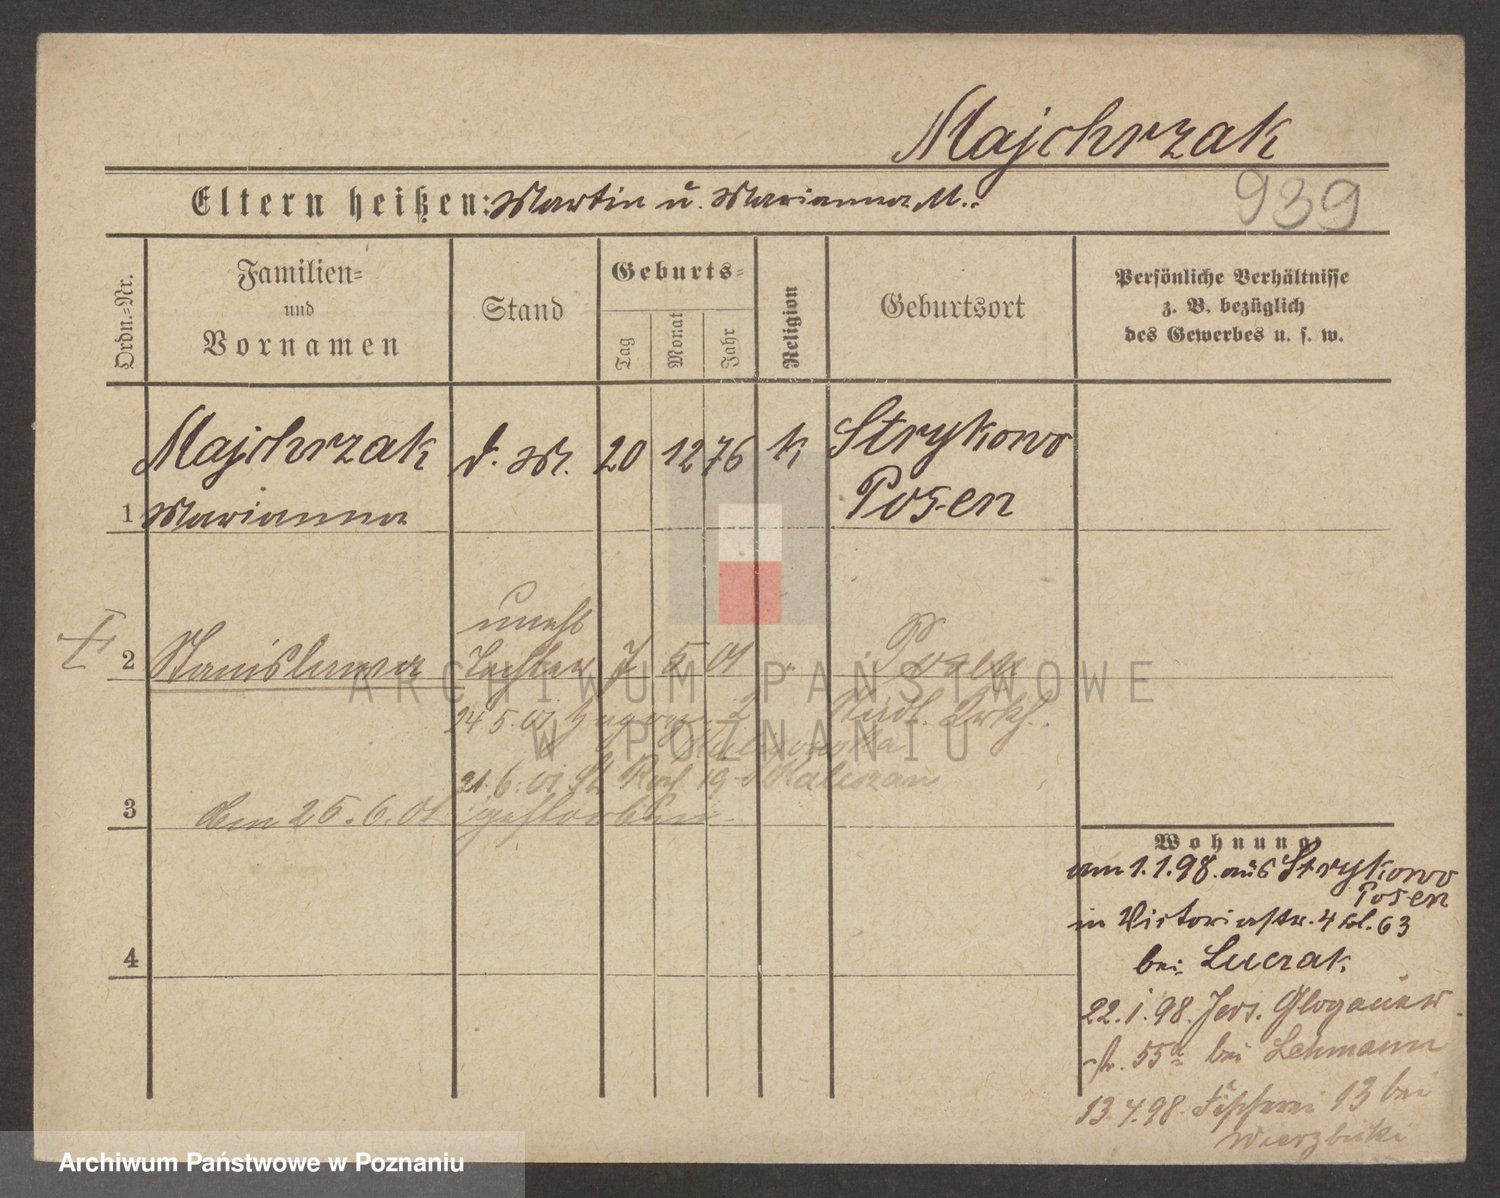 Majchrzak
939
Eltern heißen: Martin u. Marianna M.
Ordn.-Nr.
Familien-
und
Vornamen
Stand
Geburts-
Tag
Monat
Jahr
Religion
Geburtsort
Persönliche Verhältnisse
z. B. bezüglich
des Gewerbes u. s. w.
1
Majchrzak
Marianna
d. M.
20
12
76
k
Strykowo
Posen
2
Stanislawa
unehl
Tochter
7
5
01
"
Posen
14 5. 01
Städt. Krkh.
21. 6. 01. St. Roch 19
3
den 25.6.01 gestorben
4
Wohnung
am 1.1.98. aus Strykowo
Posen
in Victoriastr. 4 bl. 63
bei Luczak.
22.1.98. Jers. Glogauer
str. 55a bei Lehmann
13.4.98. Fischerei 13 bei
Wierzbicki
ARCHIWUM PAŃSTWOWE
W POZNANIU
Archiwum Państwowe w Poznaniu